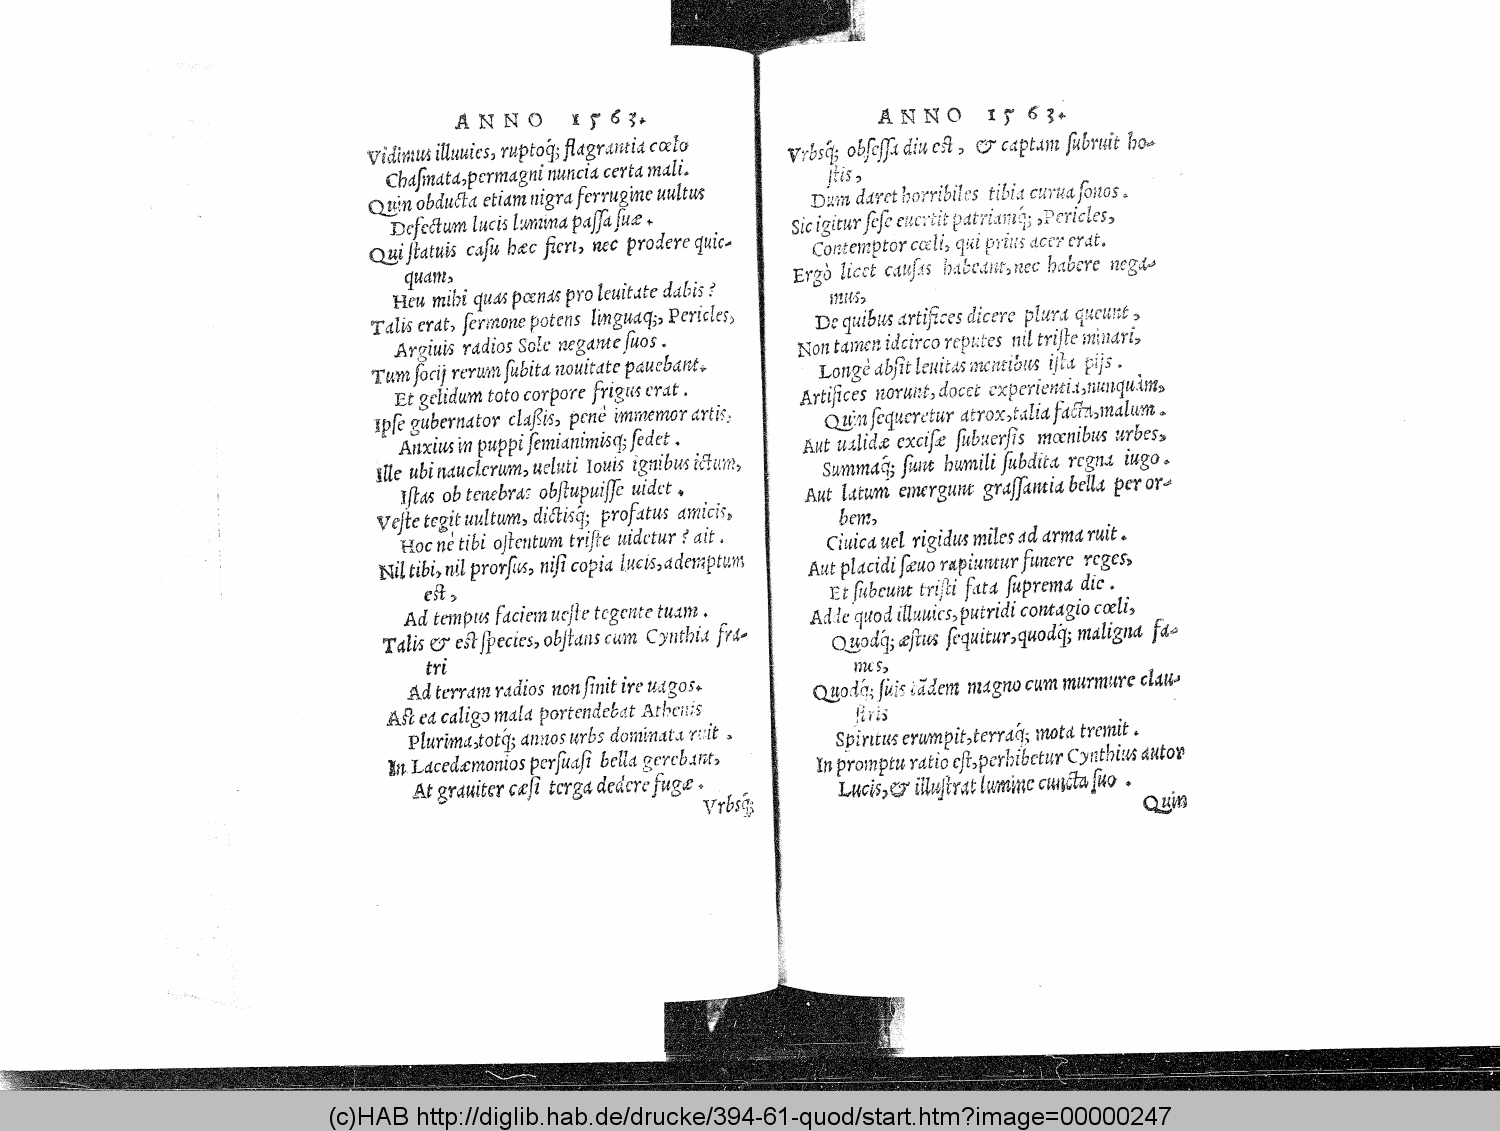 ANNO 1563.
Vidimus illuuies, ruptoq́; flagrantia cœlo
Chaſmata, permagni nuncia certa mali.
Quin obducta etiam nigra ferrugine uultus
Defectum lucis lumina paſſa ſuæ.
Qui ſtatuis caſu hæc fieri, nec prodere quic-
quam,
Heu mihi quas pœnas pro leuitate dabis?
Talis erat, ſermone potens linguaq;, Pericles,
Argiuis radios Sole negante ſuos.
Tum ſocij rerum ſubita nouitate pauebant,
Et gelidum toto corpore frigus erat.
Ipſe gubernator claßis, penè immemor artis,
Anxius in puppi ſemianimisq; ſedet.
Ille ubi nauclerum, ueluti Iouis ignibus ictum,
Iſtas ob tenebras obſtupuiſſe uidet.
Veſte tegit uultum, dictisq́; profatus amicis,
Hoc nè tibi oſtentum triſte uidetur? ait.
Nil tibi, nil prorſus, niſi copia lucis, ademptum
eſt,
Ad tempus faciem ueſte tegente tuam.
Talis & eſt ſpecies, obſtans cum Cynthia fra-
tri
Ad terram radios non ſinit ire uagos.
Aſt ea caligo mala portendebat Athenis
Plurima, totq́; annos urbs dominata ruit.
In Lacedæmonios perſuaſi bella gerebant,
At grauiter cæſi terga dedere fugæ.
Vrbsq́;
ANNO 1563.
Vrbsq́; obſeſſa diu eſt, & captam ſubruit ho-
ſtis,
Dum daret horribiles tibia curua ſonos.
Sic igitur ſeſe euertit patriamq́;, Pericles,
Contemptor cœli, qui prius acer erat.
Ergò licet cauſas habeant, nec habere nega-
mus,
De quibus artifices dicere plura queunt,
Non tamen idcirco reputes nil triſte minari,
Longè abſit leuitas mentibus iſta pijs.
Artifices norunt, docet experientia, nunquàm,
Quin ſequeretur atrox, talia facta, malum.
Aut ualidæ exciſæ ſubuerſis mœnibus urbes,
Summaq́; ſunt humili ſubdita regna iugo.
Aut latum emergunt graſſantia bella per or-
bem,
Ciuica uel rigidus miles ad arma ruit.
Aut placidi ſæuo rapiuntur funere reges,
Et ſubeunt triſti fata ſuprema die.
Adde quod illuuies, putridi contagio cœli,
Quodq́; æſtus ſequitur, quodq́; maligna fa-
mes,
Quodq́; ſuis iādem magno cum murmure clau-
ſtris
Spiritus erumpit, terraq́; mota tremit.
In promptu ratio eſt, perhibetur Cynthius autor
Lucis, & illuſtrat lumine cuncta ſuo.
Quin
(c)HAB http://diglib.hab.de/drucke/394-61-quod/start.htm?image=00000247